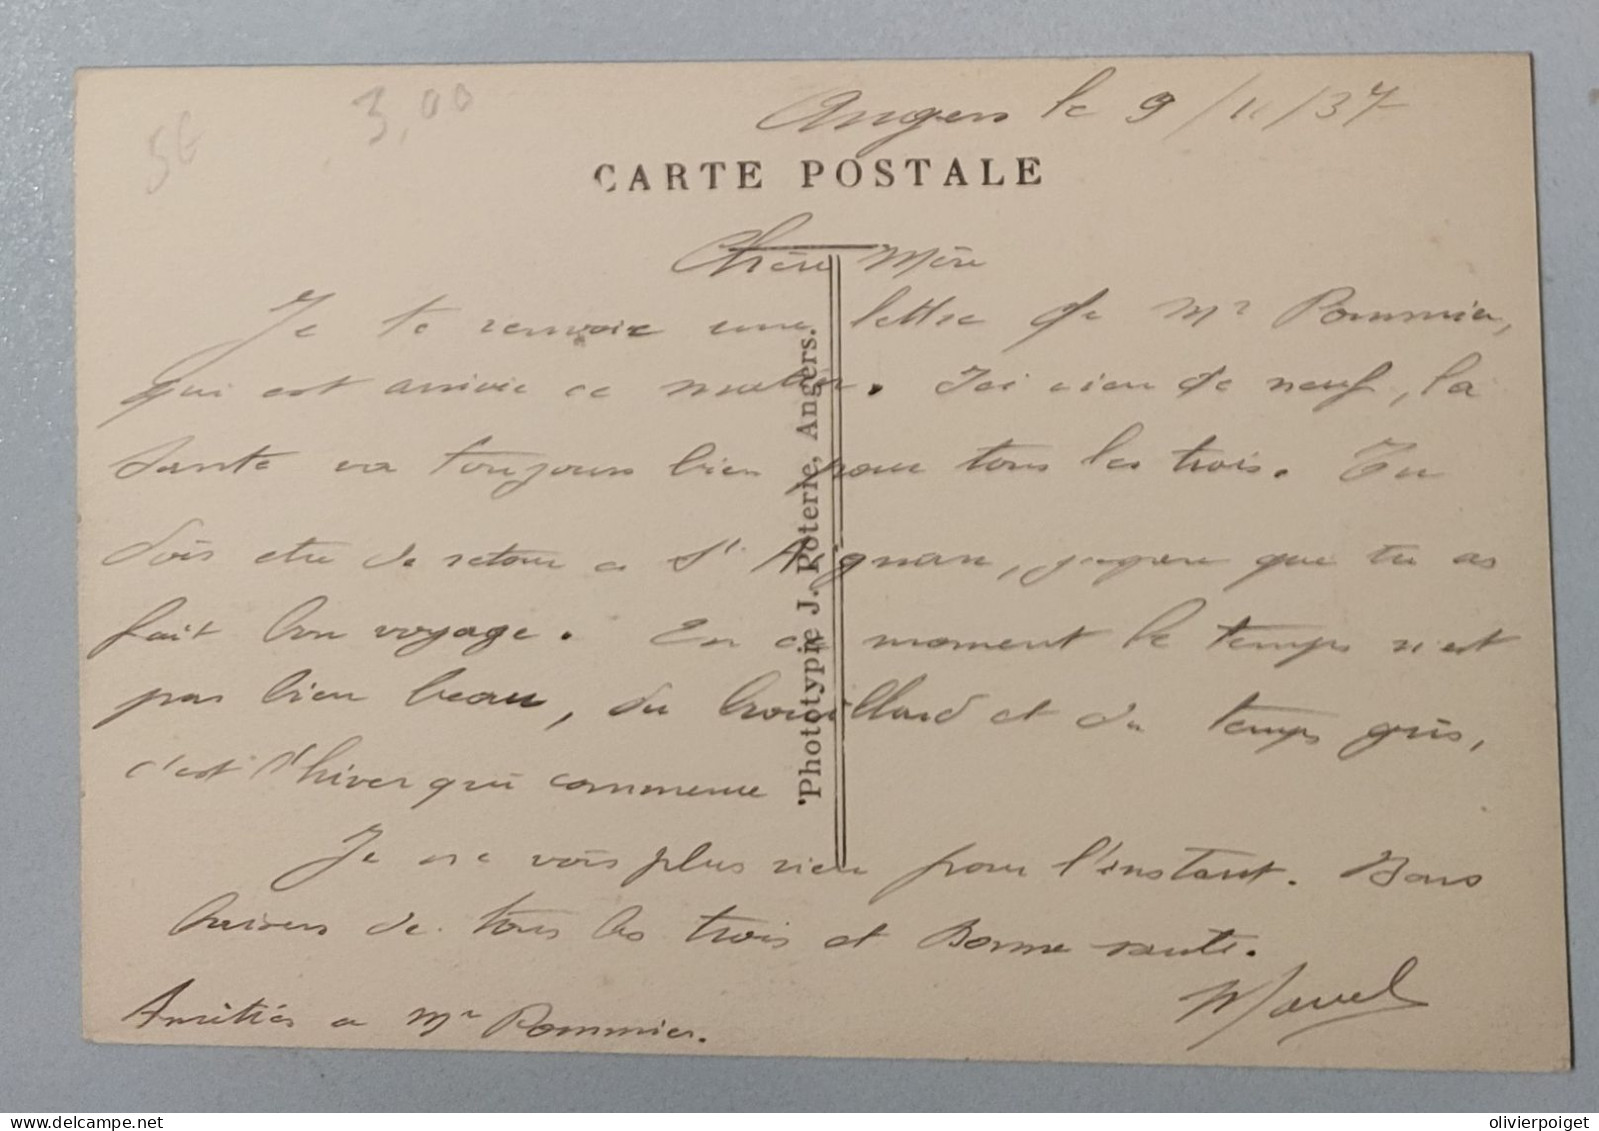 3,00
5€
Angers le 9/11/37
CARTE POSTALE
Chère Mère
Je te renvoie une lettre de Mr Pommier,
qui est arrivée ce matin. Ici rien de neuf, la
Santé va toujours bien pour tous les trois. Tu
dois etre de retour a St Aignan, j'espère que tu as
fait bon voyage. En ce moment le temps n'est
pas bien beau, du brouillard et du temps gris,
c'est l'hiver qui commence
Je ne vois plus rien pour l'instant. Bons
baisers de tous les trois et Bonne santé.
Marcel
Amitiés a Mr Pommier.
Phototypie J. Poterie, Angers.
olivierpoiget